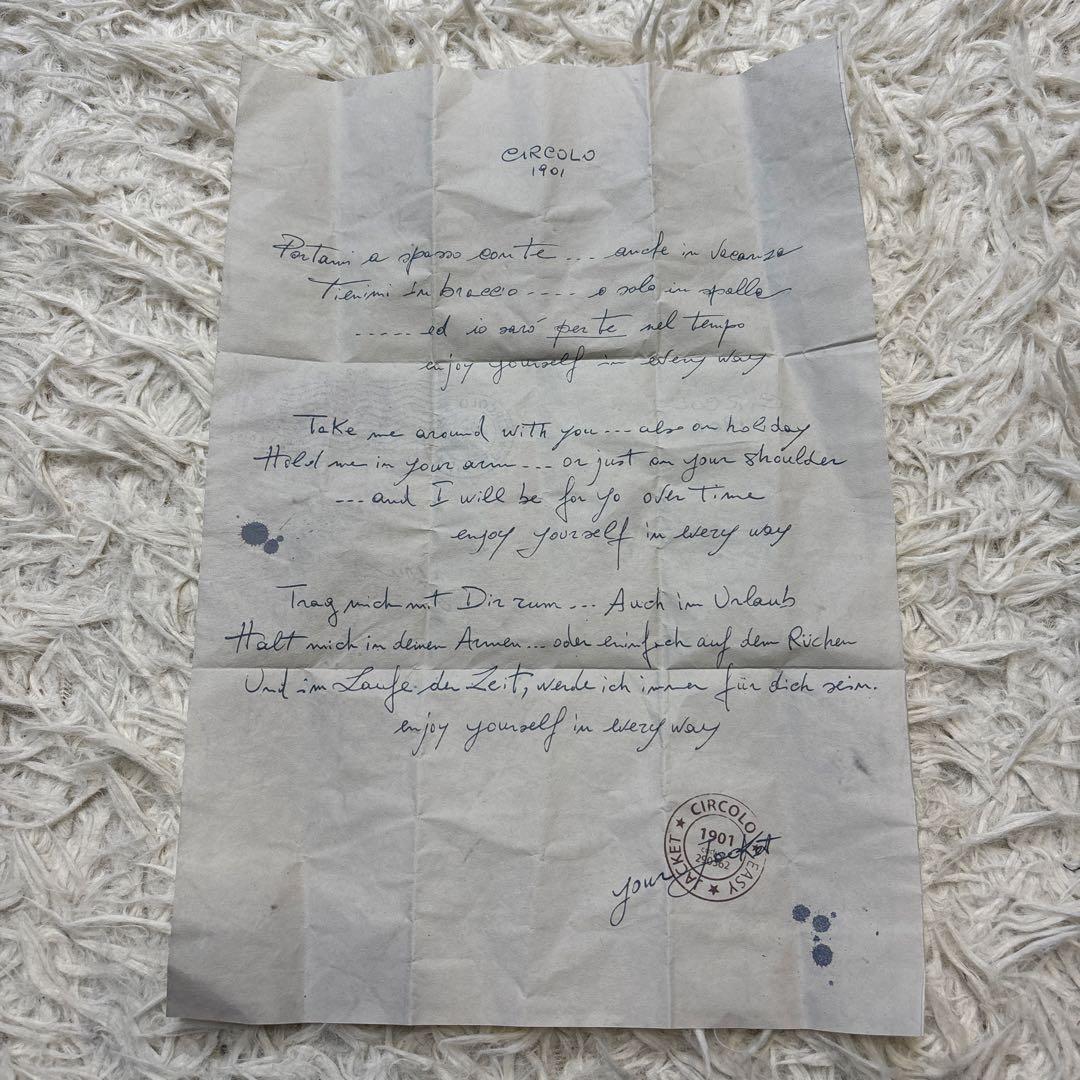 CIRCOLO
1901
Portami a spasso con te ... anche in vacanza
Tienimi in braccio .... o solo in spalla
..... ed io saró per te nel tempo
enjoy yourself in every way
Take me around with you ... also on holiday
Hold me in your arm ... or just on your shoulder
... and I will be for yo over time
enjoy yourself in every way
Trag mich mit Dir rum ... Auch im Urlaub
Halt mich in deinen Armen ... oder eninfach auf dem Rüchen
Und im Laufe der Zeit, werde ich immer für dich sein.
enjoy yourself in every way
CIRCOLO
1901
EASY
JACKET
your Jacket